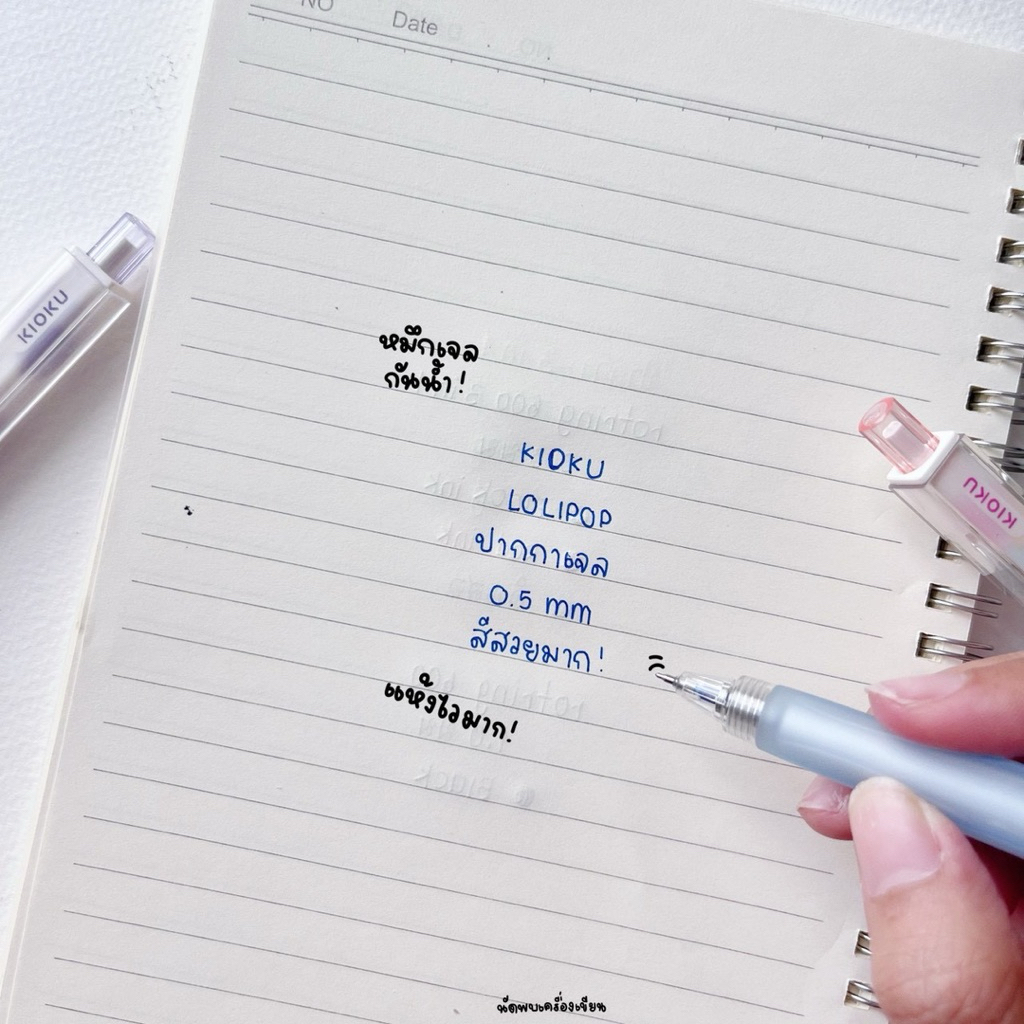 NO
Date
หมึกเจล
กันน้ำ!
KIOKU
KIOKU
LOLIPOP
ปากกาเจล
0.5 mm
สีสวยมาก!
KIOKU
แห้งไวมาก!
นัดพบเครื่องเขียน